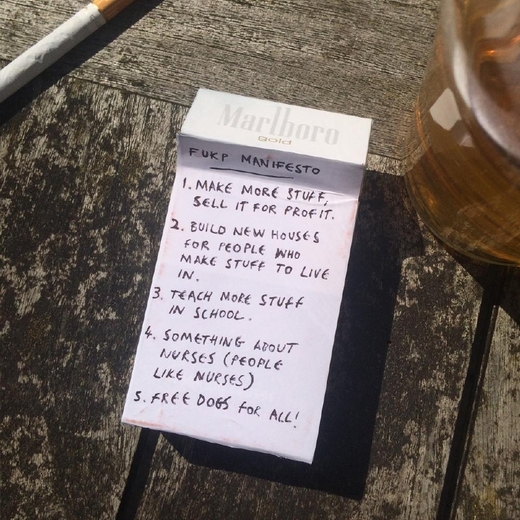 Marlboro
gold
FUKP MANIFESTO
1. MAKE MORE STUFF,
SELL IT FOR PROFIT.
2. BUILD NEW HOUSES
FOR PEOPLE WHO
MAKE STUFF TO LIVE
IN.
3. TEACH MORE STUFF
IN SCHOOL.
4. SOMETHING ABOUT
NURSES (PEOPLE
LIKE NURSES)
5. FREE DOGS FOR ALL!